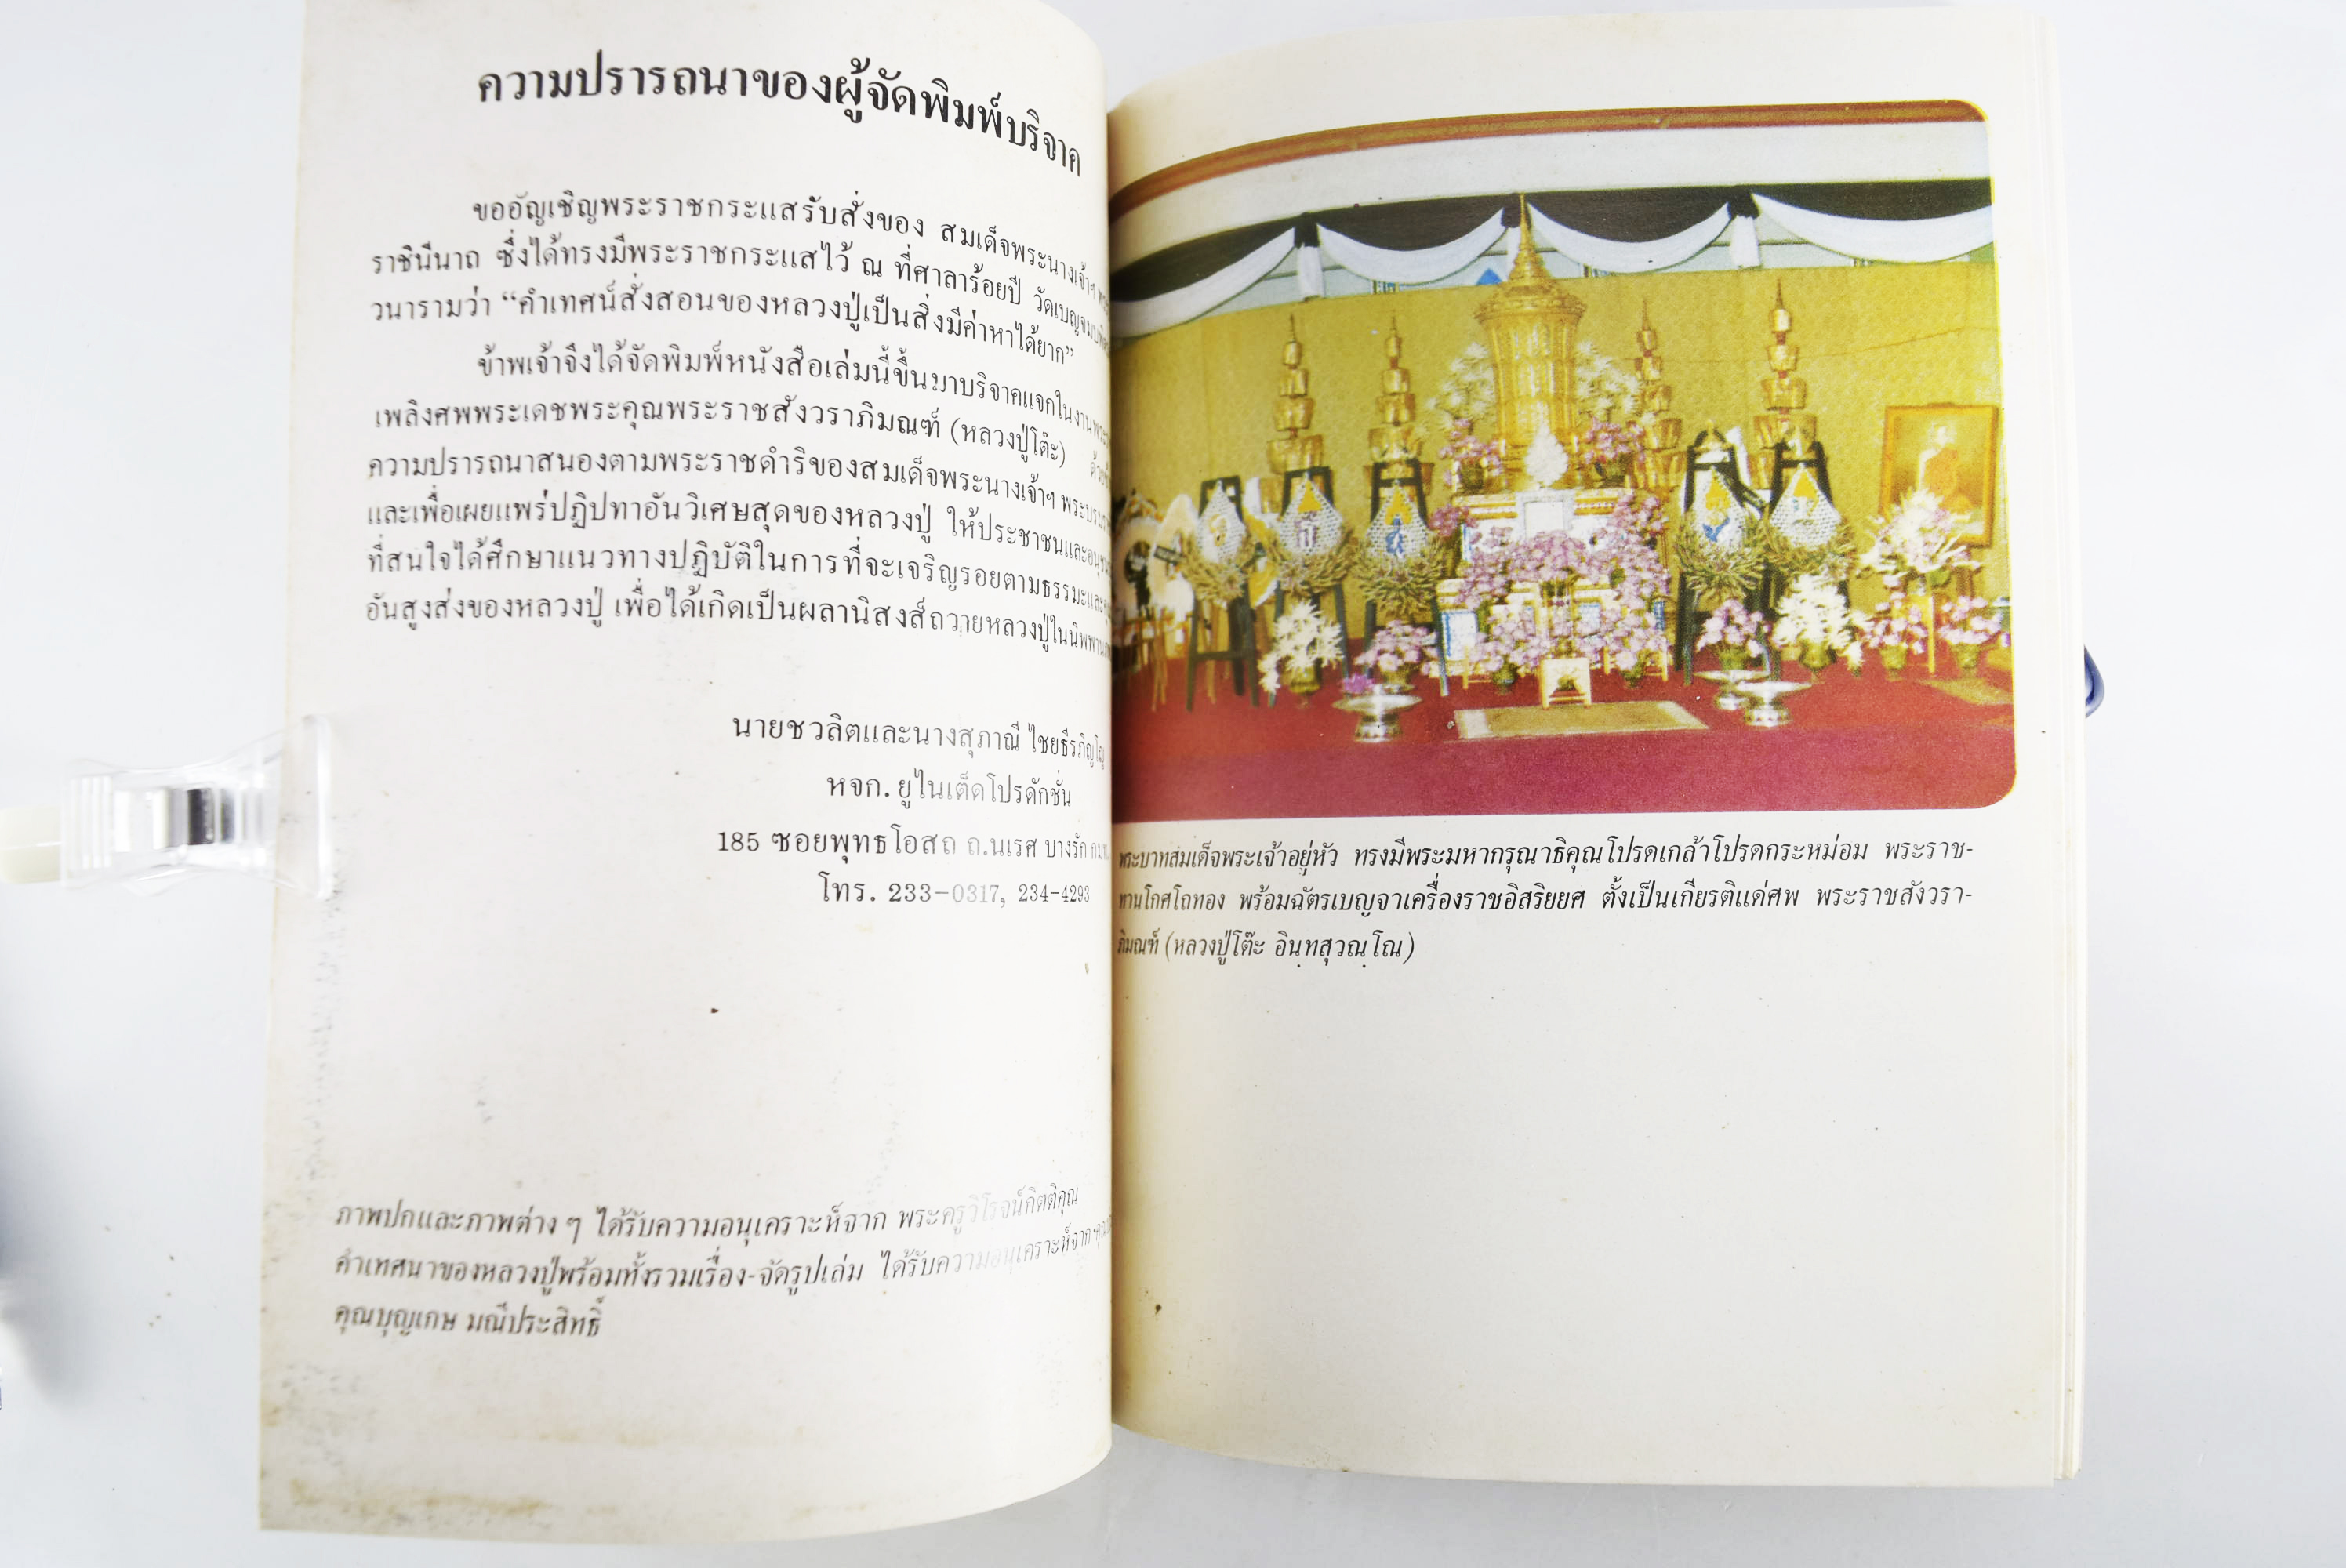 ความปรารถนาของผู้จัดพิมพ์บริจาค
ขออัญเชิญพระราชกระแสรับสั่งของ สมเด็จพระนางเจ้าฯ
ราชินีนาถ ซึ่งได้ทรงมีพระราชกระแสไว้ ณ ที่ศาลาร้อยปี วัดเบญจมบพิตร
วนารามว่า “คำเทศน์สั่งสอนของหลวงปู่เป็นสิ่งมีค่าหาได้ยาก”
ข้าพเจ้าจึงได้จัดพิมพ์หนังสือเล่มนี้ขึ้นมาบริจาคแจกในงาน
เพลิงศพพระเดชพระคุณพระราชสังวราภิมณฑ์ (หลวงปู่โต๊ะ)
ความปรารถนาสนองตามพระราชดำริของสมเด็จพระนางเจ้าฯ
และเพื่อเผยแพร่ปฏิปทาอันวิเศษสุดของหลวงปู่ ให้ประชาชนและ
ที่สนใจได้ศึกษาแนวทางปฏิบัติในการที่จะเจริญรอยตามธรรมะและ
อันสูงส่งของหลวงปู่ เพื่อได้เกิดเป็นผลานิสงส์ถวายหลวงปู่ใน
นายชวลิตและนางสุภาณี ไชยธีรภิญโญ
หจก. ยูไนเต็ดโปรดักชั่น
185 ซอยพุทธโอสถ ถ.นเรศ บางรัก กมท.
โทร. 233-0317, 234-4293
ภาพปกและภาพต่าง ๆ ได้รับความอนุเคราะห์จาก พระครูวิโรจน์กิตติคุณ
คำเทศนาของหลวงปู่พร้อมทั้งรวมเรื่อง-จัดรูปเล่ม ได้รับความอนุเคราะห์จาก
คุณบุญเกษ มณีประสิทธิ์
พระบาทสมเด็จพระเจ้าอยู่หัว ทรงมีพระมหากรุณาธิคุณโปรดเกล้าโปรดกระหม่อม พระราช-
ทานโกศโถทอง พร้อมฉัตรเบญจาเครื่องราชอิสริยยศ ตั้งเป็นเกียรติแด่ศพ พระราชสังวรา-
ภิมณฑ์ (หลวงปู่โต๊ะ อินฺทสุวณฺโณ)